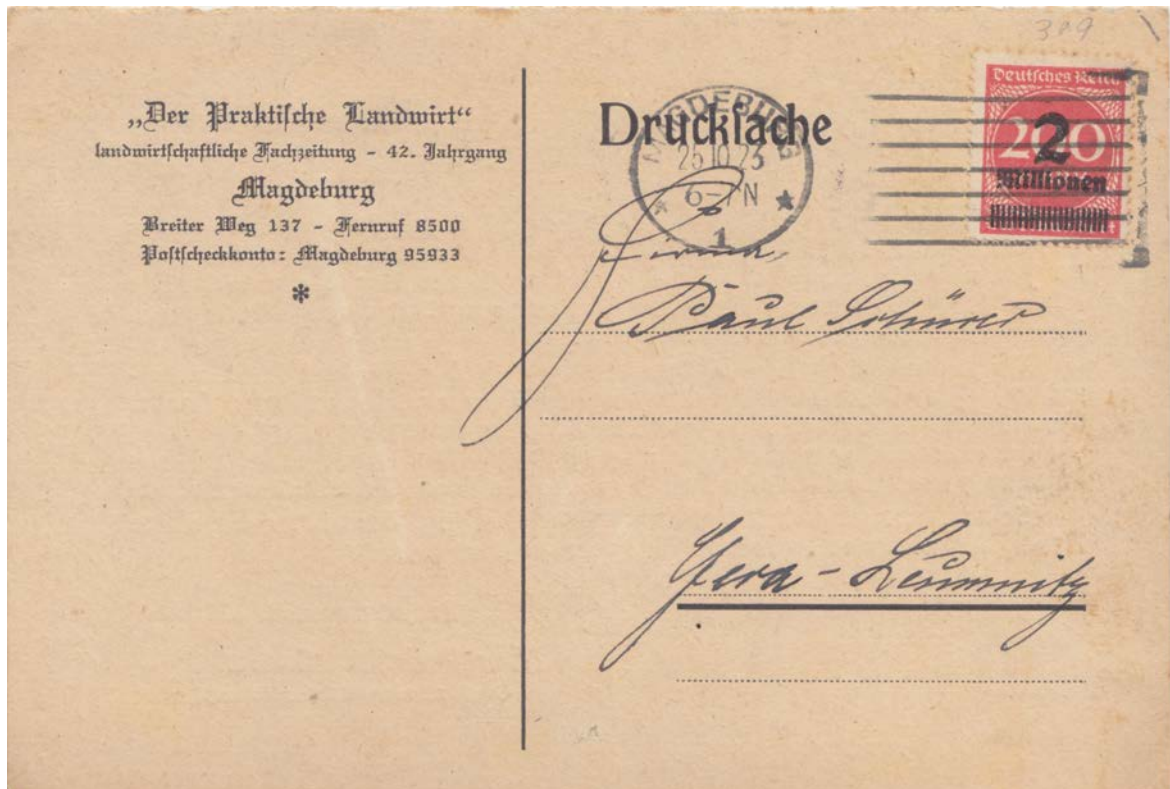 309
„Der Praktische Landwirt“
landwirtschaftliche Fachzeitung - 42. Jahrgang
Magdeburg
Breiter Weg 137 - Fernruf 8500
Postscheckkonto: Magdeburg 95933
*
Drucksache
MAGDEBURG
25.10.23
6-7N
* 1 *
Deutsches Reich
200
2
Millionen
Firma
Paul Schürer
Gera-Leumnitz